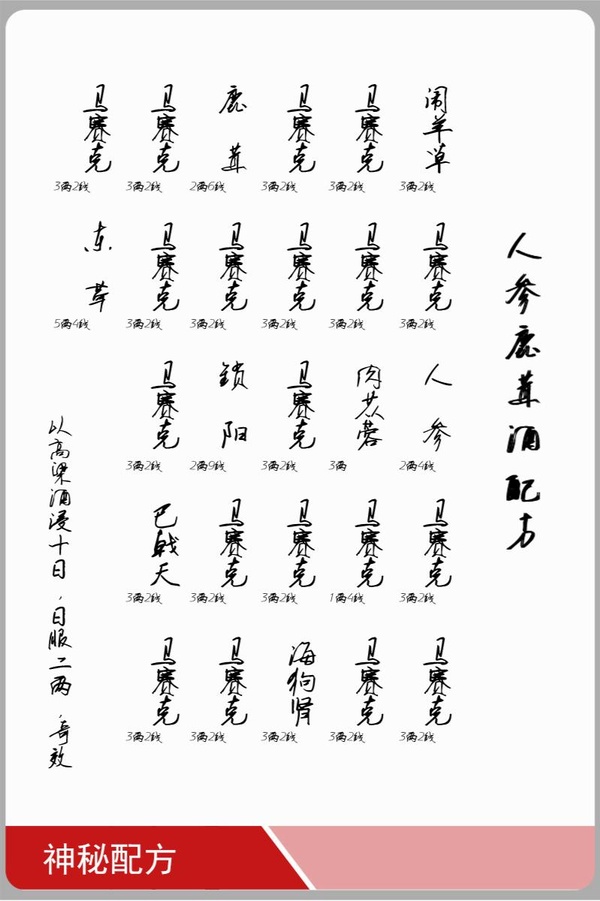 人参鹿茸酒配方
闹羊草
3两2钱
马赛克
3两2钱
人参
2两4钱
马赛克
3两2钱
马赛克
3两2钱
马赛克
3两2钱
马赛克
3两2钱
肉苁蓉
3两
马赛克
1两4钱
马赛克
3两2钱
马赛克
3两2钱
马赛克
3两2钱
马赛克
3两2钱
马赛克
3两2钱
海狗肾
3两2钱
鹿茸
2两6钱
马赛克
3两2钱
锁阳
2两9钱
马赛克
3两2钱
马赛克
3两2钱
马赛克
3两2钱
马赛克
3两2钱
马赛克
3两2钱
巴戟天
3两2钱
马赛克
3两2钱
马赛克
3两2钱
东革
5两4钱
以高梁酒浸十日，日服二两，奇效
神秘配方